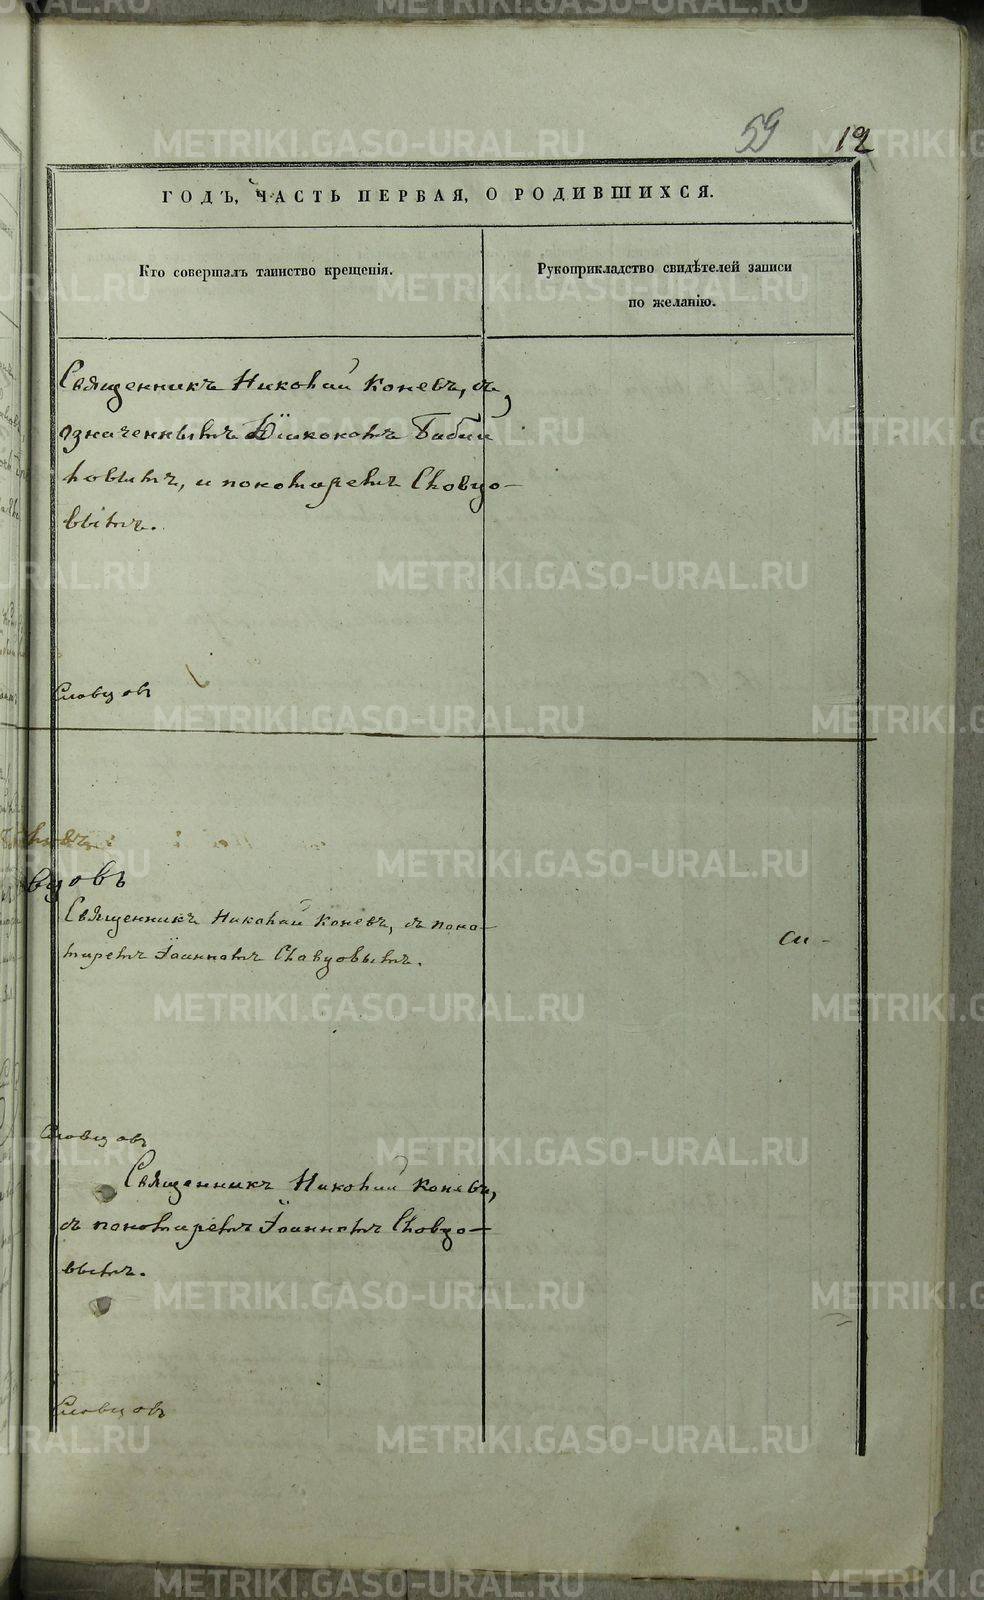 59 12
ГОДЪ, ЧАСТЬ ПЕРВАЯ, О РОДИВШИХСЯ.
Кто совершалъ таинство крещенія.
Рукоприкладство свидѣтелей записи
по желанію.
Священникъ Николай Коневъ, съ
означеннымъ Діакономъ Бабий
ловымъ, и пономаремъ Словцо-
вымъ.
Словцовъ
вцовъ
Священникъ Николай Коневъ, съ поно-
маремъ Іоанномъ Словцовымъ.
Словцовъ
Священникъ Николай Коневъ,
съ пономаремъ Іоанномъ Словцо-
вымъ.
Словцовъ
METRIKI.GASO-URAL.RU